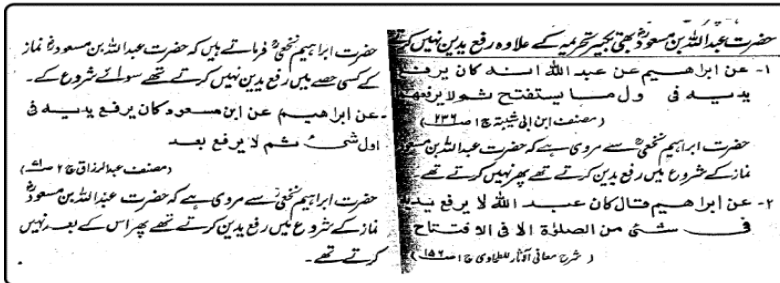 حضرت عبداللہ بن مسعودؓ بھی تکبیر تحریمہ کے علاوہ رفع یدین نہیں کرتے
۱- عن ابراهيم عن عبد الله انه كان يرفع
يديه فى اول ما يستفتح ثم لا يرفعهما
(مصنف ابن ابی شیبۃ ج۱ ص۲۳۶)
حضرت ابراہیم نخعیؒ سے مروی ہے کہ حضرت عبداللہ بن مسعودؓ
نماز کے شروع میں رفع یدین کرتے تھے پھر نہیں کرتے تھے۔
۲- عن ابراهيم قال كان عبد الله لا يرفع يديه
فى شئى من الصلوٰة الا فى الافتتاح
(شرح معانی الآثار للطحاوی ج۱ ص۱۵۶)
حضرت ابراہیم نخعیؒ فرماتے ہیں کہ حضرت عبداللہ بن مسعودؓ نماز
کے کسی حصے میں رفع یدین نہیں کرتے تھے سوائے شروع کے۔
- عن ابراهيم عن ابن مسعود كان يرفع يديه فى
اول شئ ثم لا يرفع بعد
(مصنف عبدالرزاق ج۲ ص۷۱)
حضرت ابراہیم نخعیؒ سے مروی ہے کہ حضرت عبداللہ بن مسعودؓ
نماز کے شروع میں رفع یدین کرتے تھے پھر اس کے بعد نہیں
کرتے تھے۔